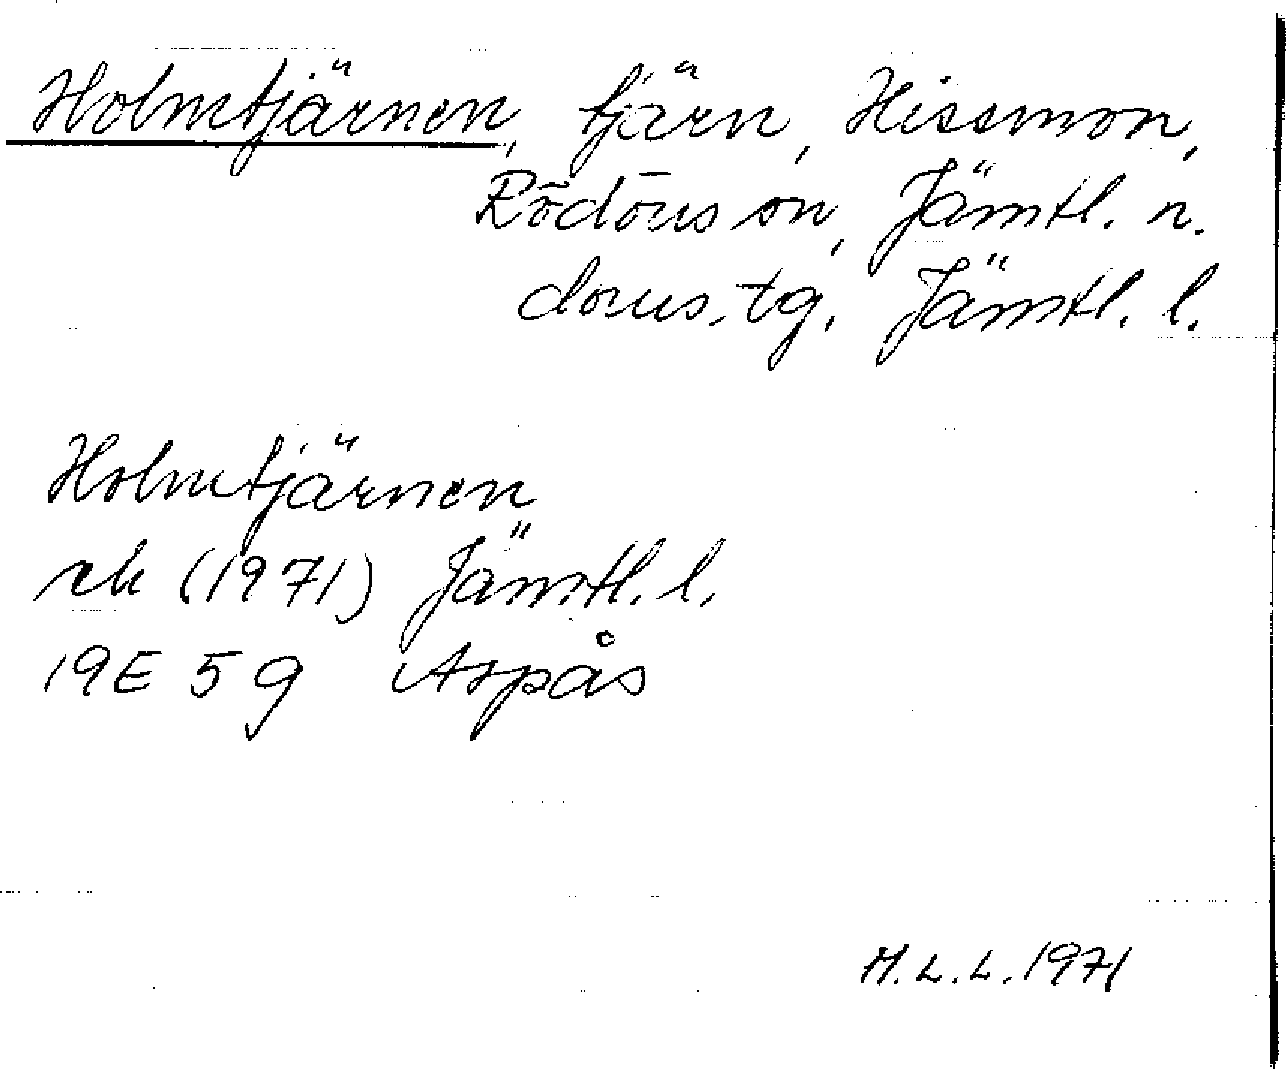 Holmtjärnen, tjärn, Hissmon,
Rödöns sn, Jämtl. n.
doms. tg. Jämtl. l.
Holmtjärnen
rek (1971) Jämtl. l.
19E 5 g Aspås
M.L.L. 1971